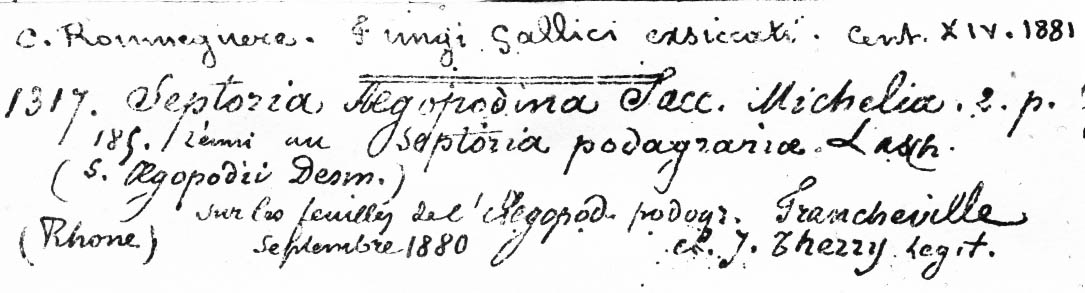 C. Roumeguere. Fungi Gallici exsiccati. Cent. XIV. 1881
1317. Septoria Ægopodina Sacc. Michelia. 2. p.
185. réuni au Septoria podagrariæ Lasch.
(S. Ægopodii Desm.)
sur les feuilles de l'Ægopod. podagr. Francheville
(Rhone) Septembre 1880 J. Therry Legit.